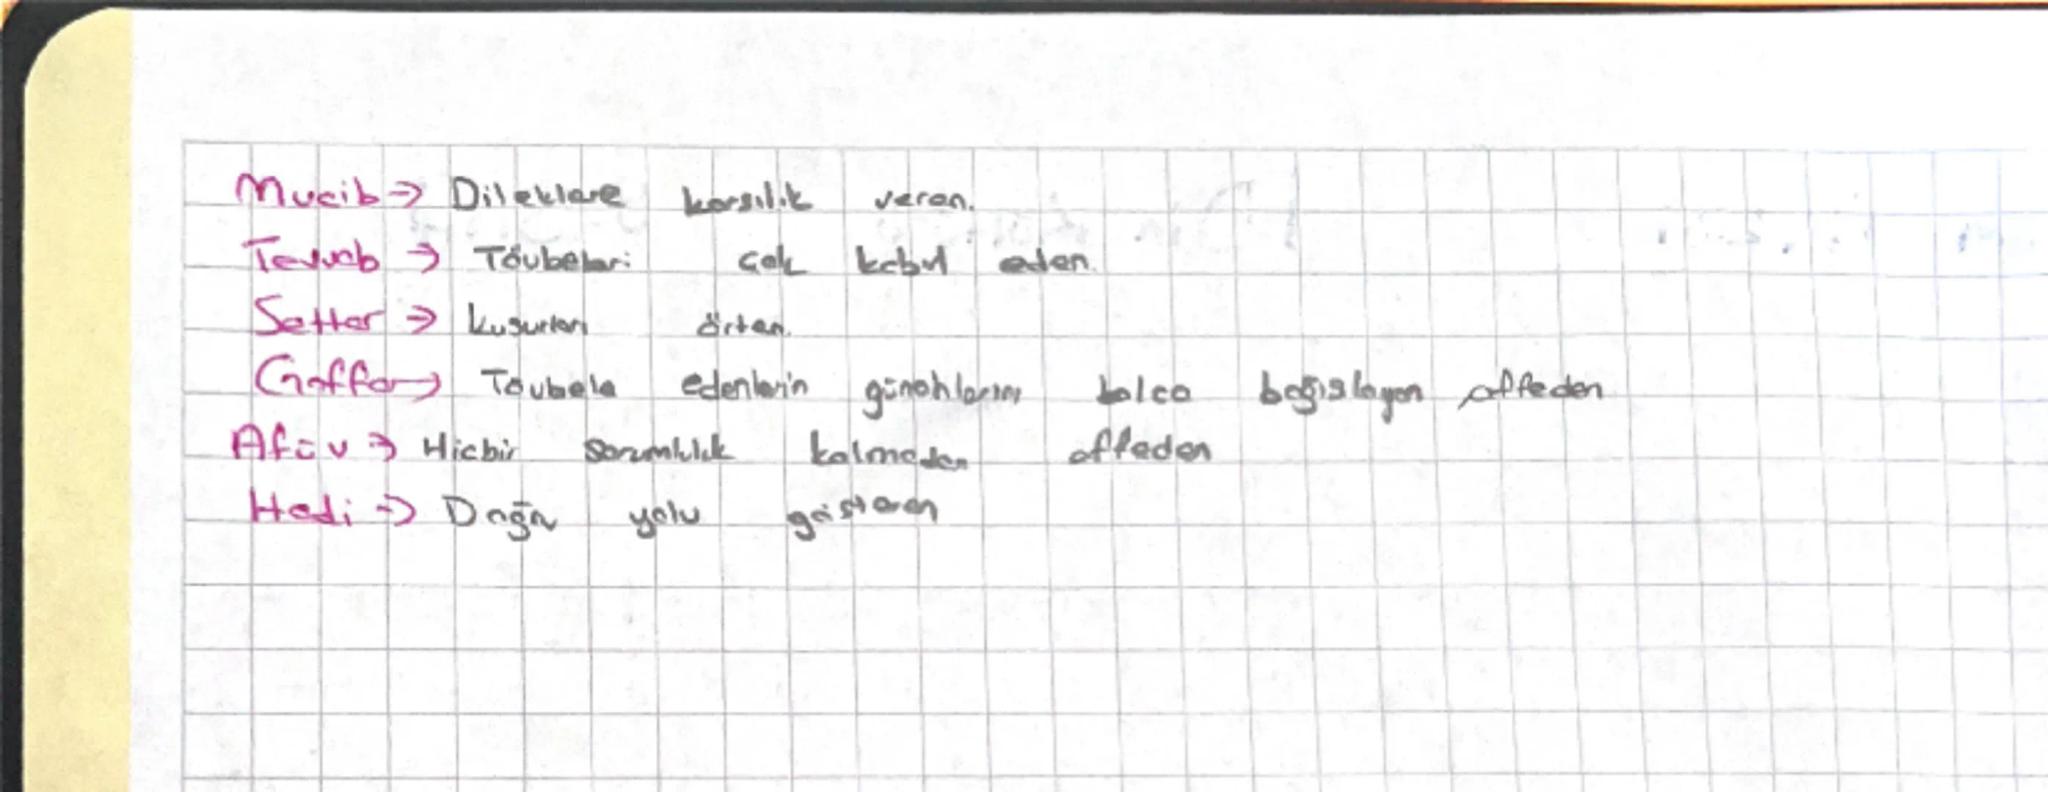 Mucib → Dileklere karşılık veren.
Tevvab → Tövbeleri çok kabul eden.
Settar → Kusurları örten.
Gaffar → Tövbele edenlerin günahlarını bolca bağışlayan affeden
Afüv → Hiçbir sorumluluk kalmadan affeden
Hadi → Doğru yolu gösteren